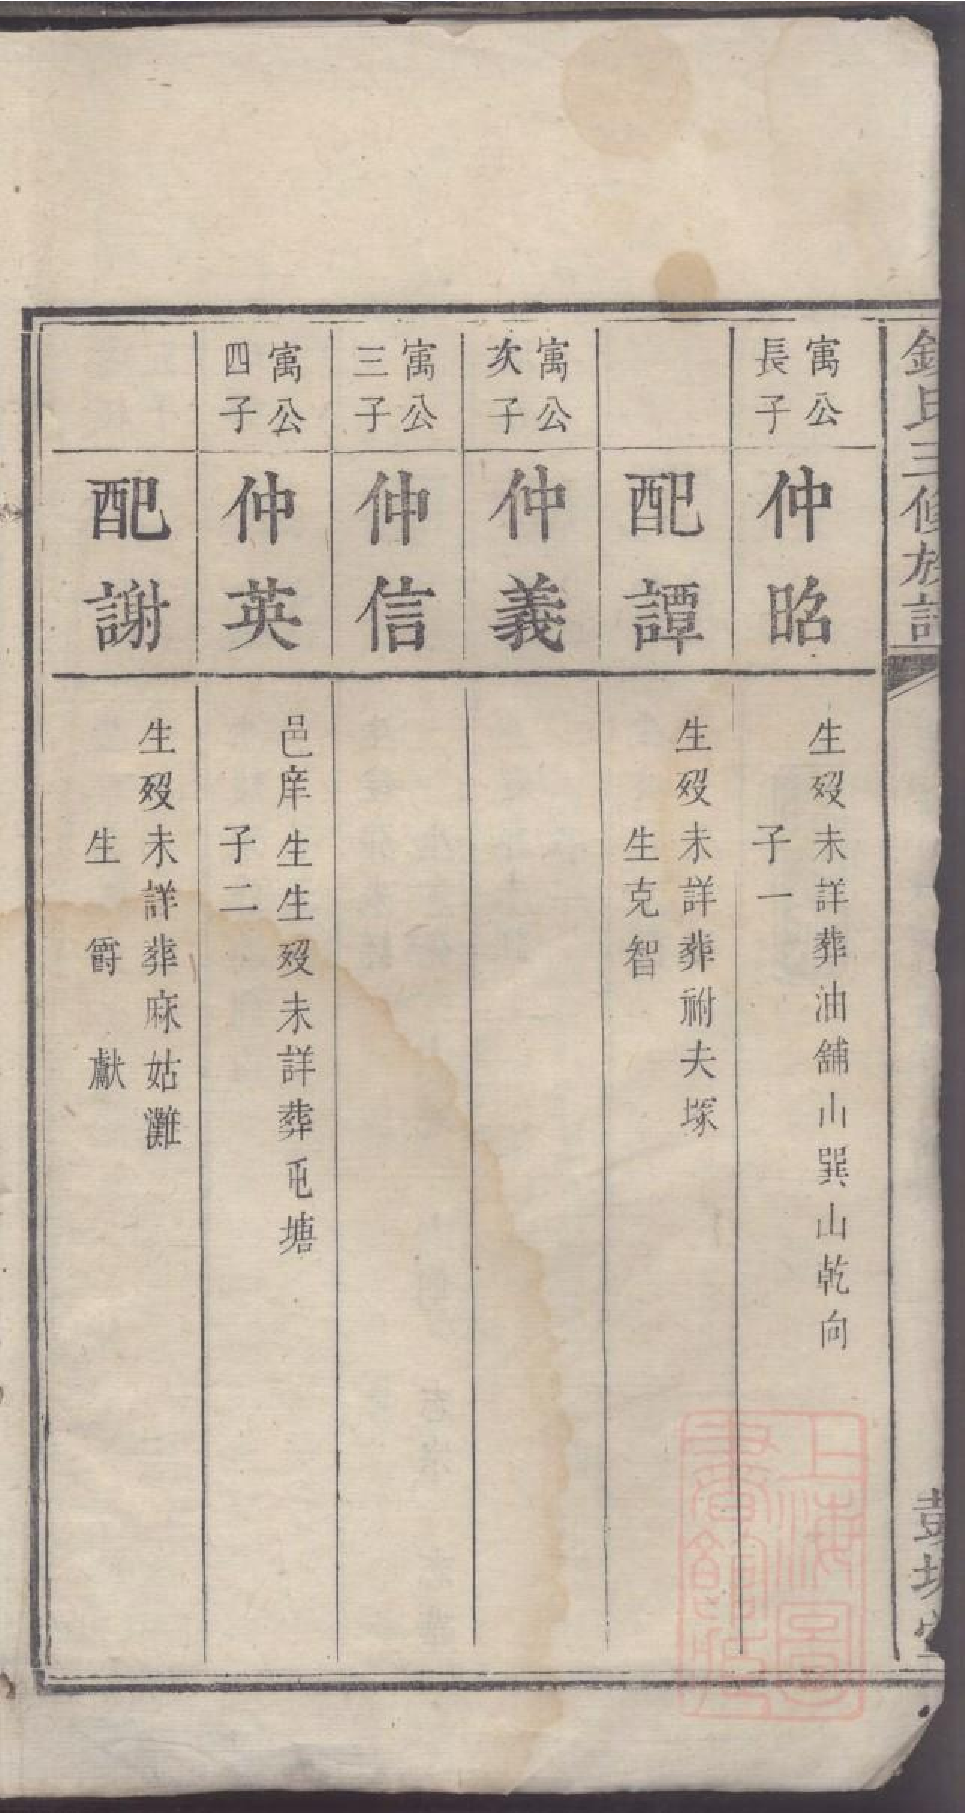 氏三修族
寓公
長子
仲昭
生歿未詳葬油舖山巽山乾向
子一
配譚
生歿未詳葬祔夫塚
生克智
寓公
次子
仲義
寓公
三子
仲信
寓公
四子
仲英
邑庠生生歿未詳葬瓦塘
子二
配謝
生歿未詳葬麻姑灘
生 爵 獻
上海圖
書館藏